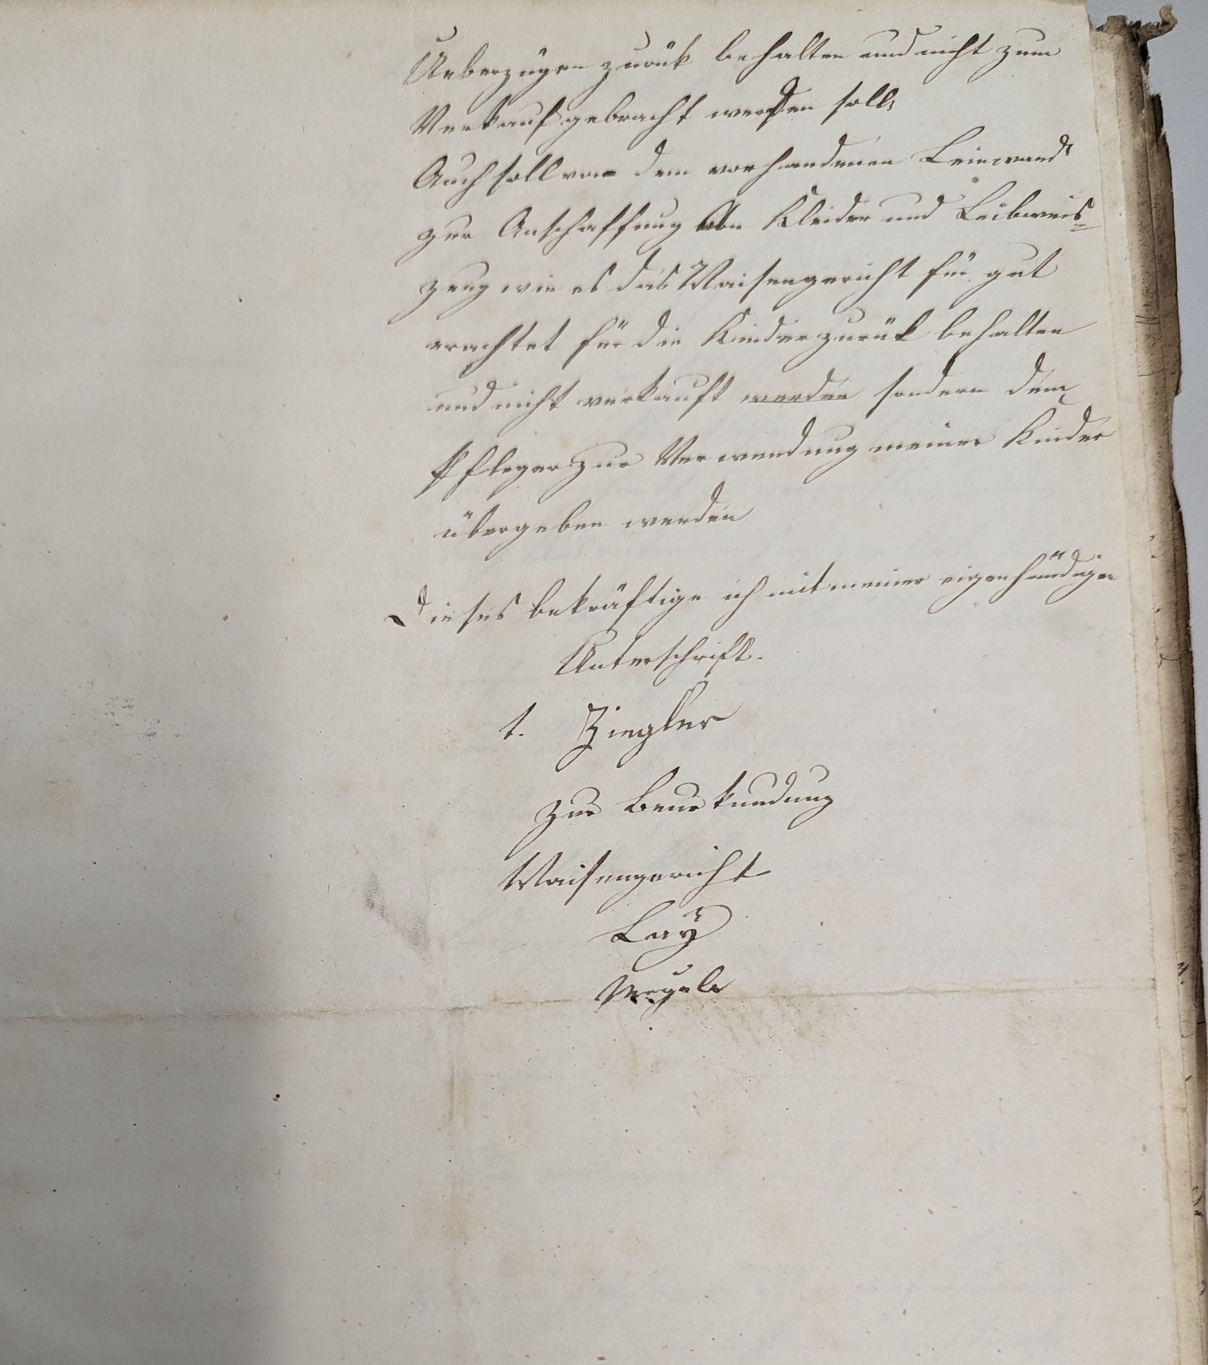 Ueberzügen zurük behalten und nicht zum
Verkauf gebracht werden soll,
Auch soll von dem vorhandenen Leinwand
zur Anschaffung von Kleider und Leibweis=
zeug wie es das Waisengericht für gut
erachtet für die Kinder zurük behalten
und nicht verkauft werden sondern dem
Pfleger zur Verwendung meiner Kinder
übergeben werden
Dieses bekräftige ich mit meiner eigenhändigen
Unterschrift.
t. Ziegler
Zur Beurkundung
Waisengericht
Lay